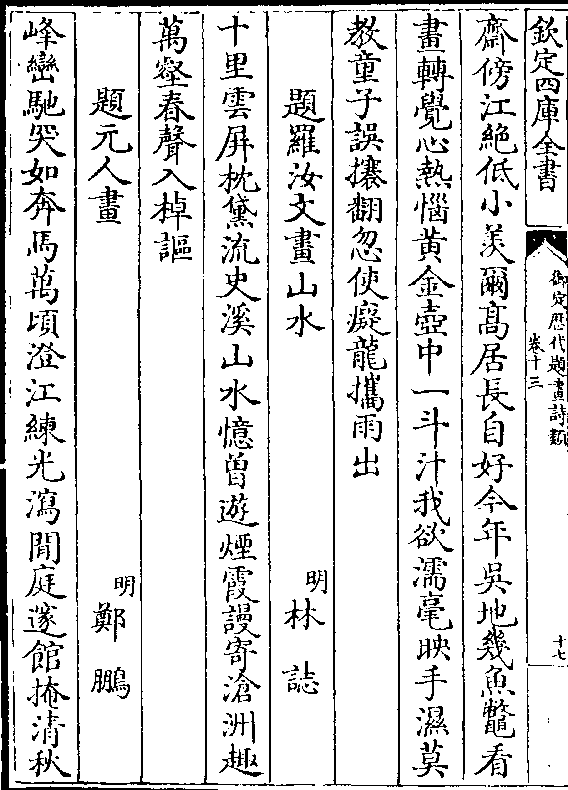 欽定四庫全書
御定歷代題畫詩類
卷十三
十七
齋傍江絶低小羨爾髙居長自好今年吳地幾魚鼈看
畫轉覺心熱惱黄金壺中一斗汁我欲濡毫映手濕莫
教童子誤攘翻忽使癡龍攜雨出
題羅汝文畫山水
明林誌
十里雲屏枕黛流史溪山水憶曾遊煙霞謾寄滄洲趣
萬壑春聲入棹謳
題元人畫
明鄭鵬
峰巒馳哭如奔馬萬頃澄江練光瀉閒庭邃館掩清秋